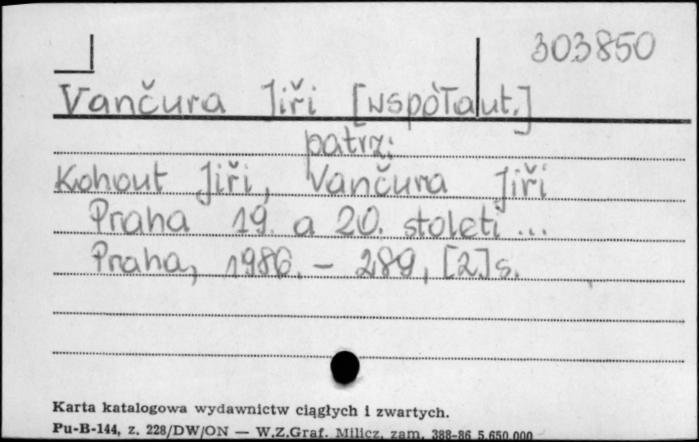 303850
Vančura Jiři [współaut.]
patrz:
Kohout Jiři, Vančura Jiři
Praha 19. a 20. stoleti ...
Praha, 1986. – 289, [2] s.
Karta katalogowa wydawnictw ciągłych i zwartych.
Pu-B-144, z. 228/DW/ON — W.Z.Graf. Milicz, zam. 388-86 5.650.000